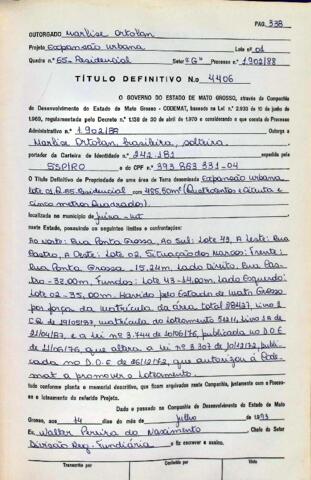 PAG. 338
OUTORGADO Marlise Ortolan
Projeto Expansão urbana Lote nº 01
Quadra n.º 65-Residencial Setor "G" Processo n.º 1.902/88
TÍTULO DEFINITIVO N.o 4406
O GOVERNO DO ESTADO DE MATO GROSSO, através da Companhia
de Desenvolvimento do Estado de Mato Grosso - CODEMAT, baseado na Lei n.º 2.930 de 10 de junho de
1.969, regulamentada pelo Decreto n.º 1.138 de 30 de abril de 1970 e considerando o que consta do Processo
Administrativo n.º 1.902/88 Outorga a
Marlise Ortolan, brasileira, solteira,
portador da Carteira de Identidade n.º 242.181 expedida pela
SSP/RO e do CPF n.º 393.863.331-04
O Título Definitivo de Propriedade de uma área de Terra denominada Expansão urbana
lote 01, Q.65, Residencial com 485,50m² (Quatrocentos e Oitenta e
Cinco metros Quadrados).
localizada no município de Juína-MT
neste Estado, possuindo os seguintes limites e confrontações:
Ao Norte: Rua Ponta Grossa, Ao Sul: Lote 43, A Leste: Rua
A Oeste: Lote 02, Situação dos Marcos: Frente:
Rua Ponta Grossa - 15,24m. Lado Direito:
-32,00m, Fundos: Lote 43-14,00m. Lado Esquerdo:
Lote 02-35,00m. Havido pelo Estado de Mato Grosso
por força da matrícula da área total
de 19/05/87, matrícula do Loteamento
21/04/87, e a Lei nº 3.744 de 10/06/76, publicada no D.O.E
de 11/06/76, que altera a Lei nº 3.307 de 10/12/72, publi-
cada no D.O.E de 26/12/72, que autorizou á Code-
mat a promover o Loteamento.
tudo conforme planta e memorial descritivo, que ficam arquivados nesta Companhia, juntamente com o Proces-
so e loteamento do referido Projeto.
Dado e passado na Companhia de Desenvolvimento do Estado de Mato
Grosso, aos 14 dias do mês de julho de 1.993
Eu, Walter Pereira do Nascimento Chefe do Setor
Divisão Reg. Fundiária o fiz escrever e assino.
Transcrito por
Conferido por
Visto